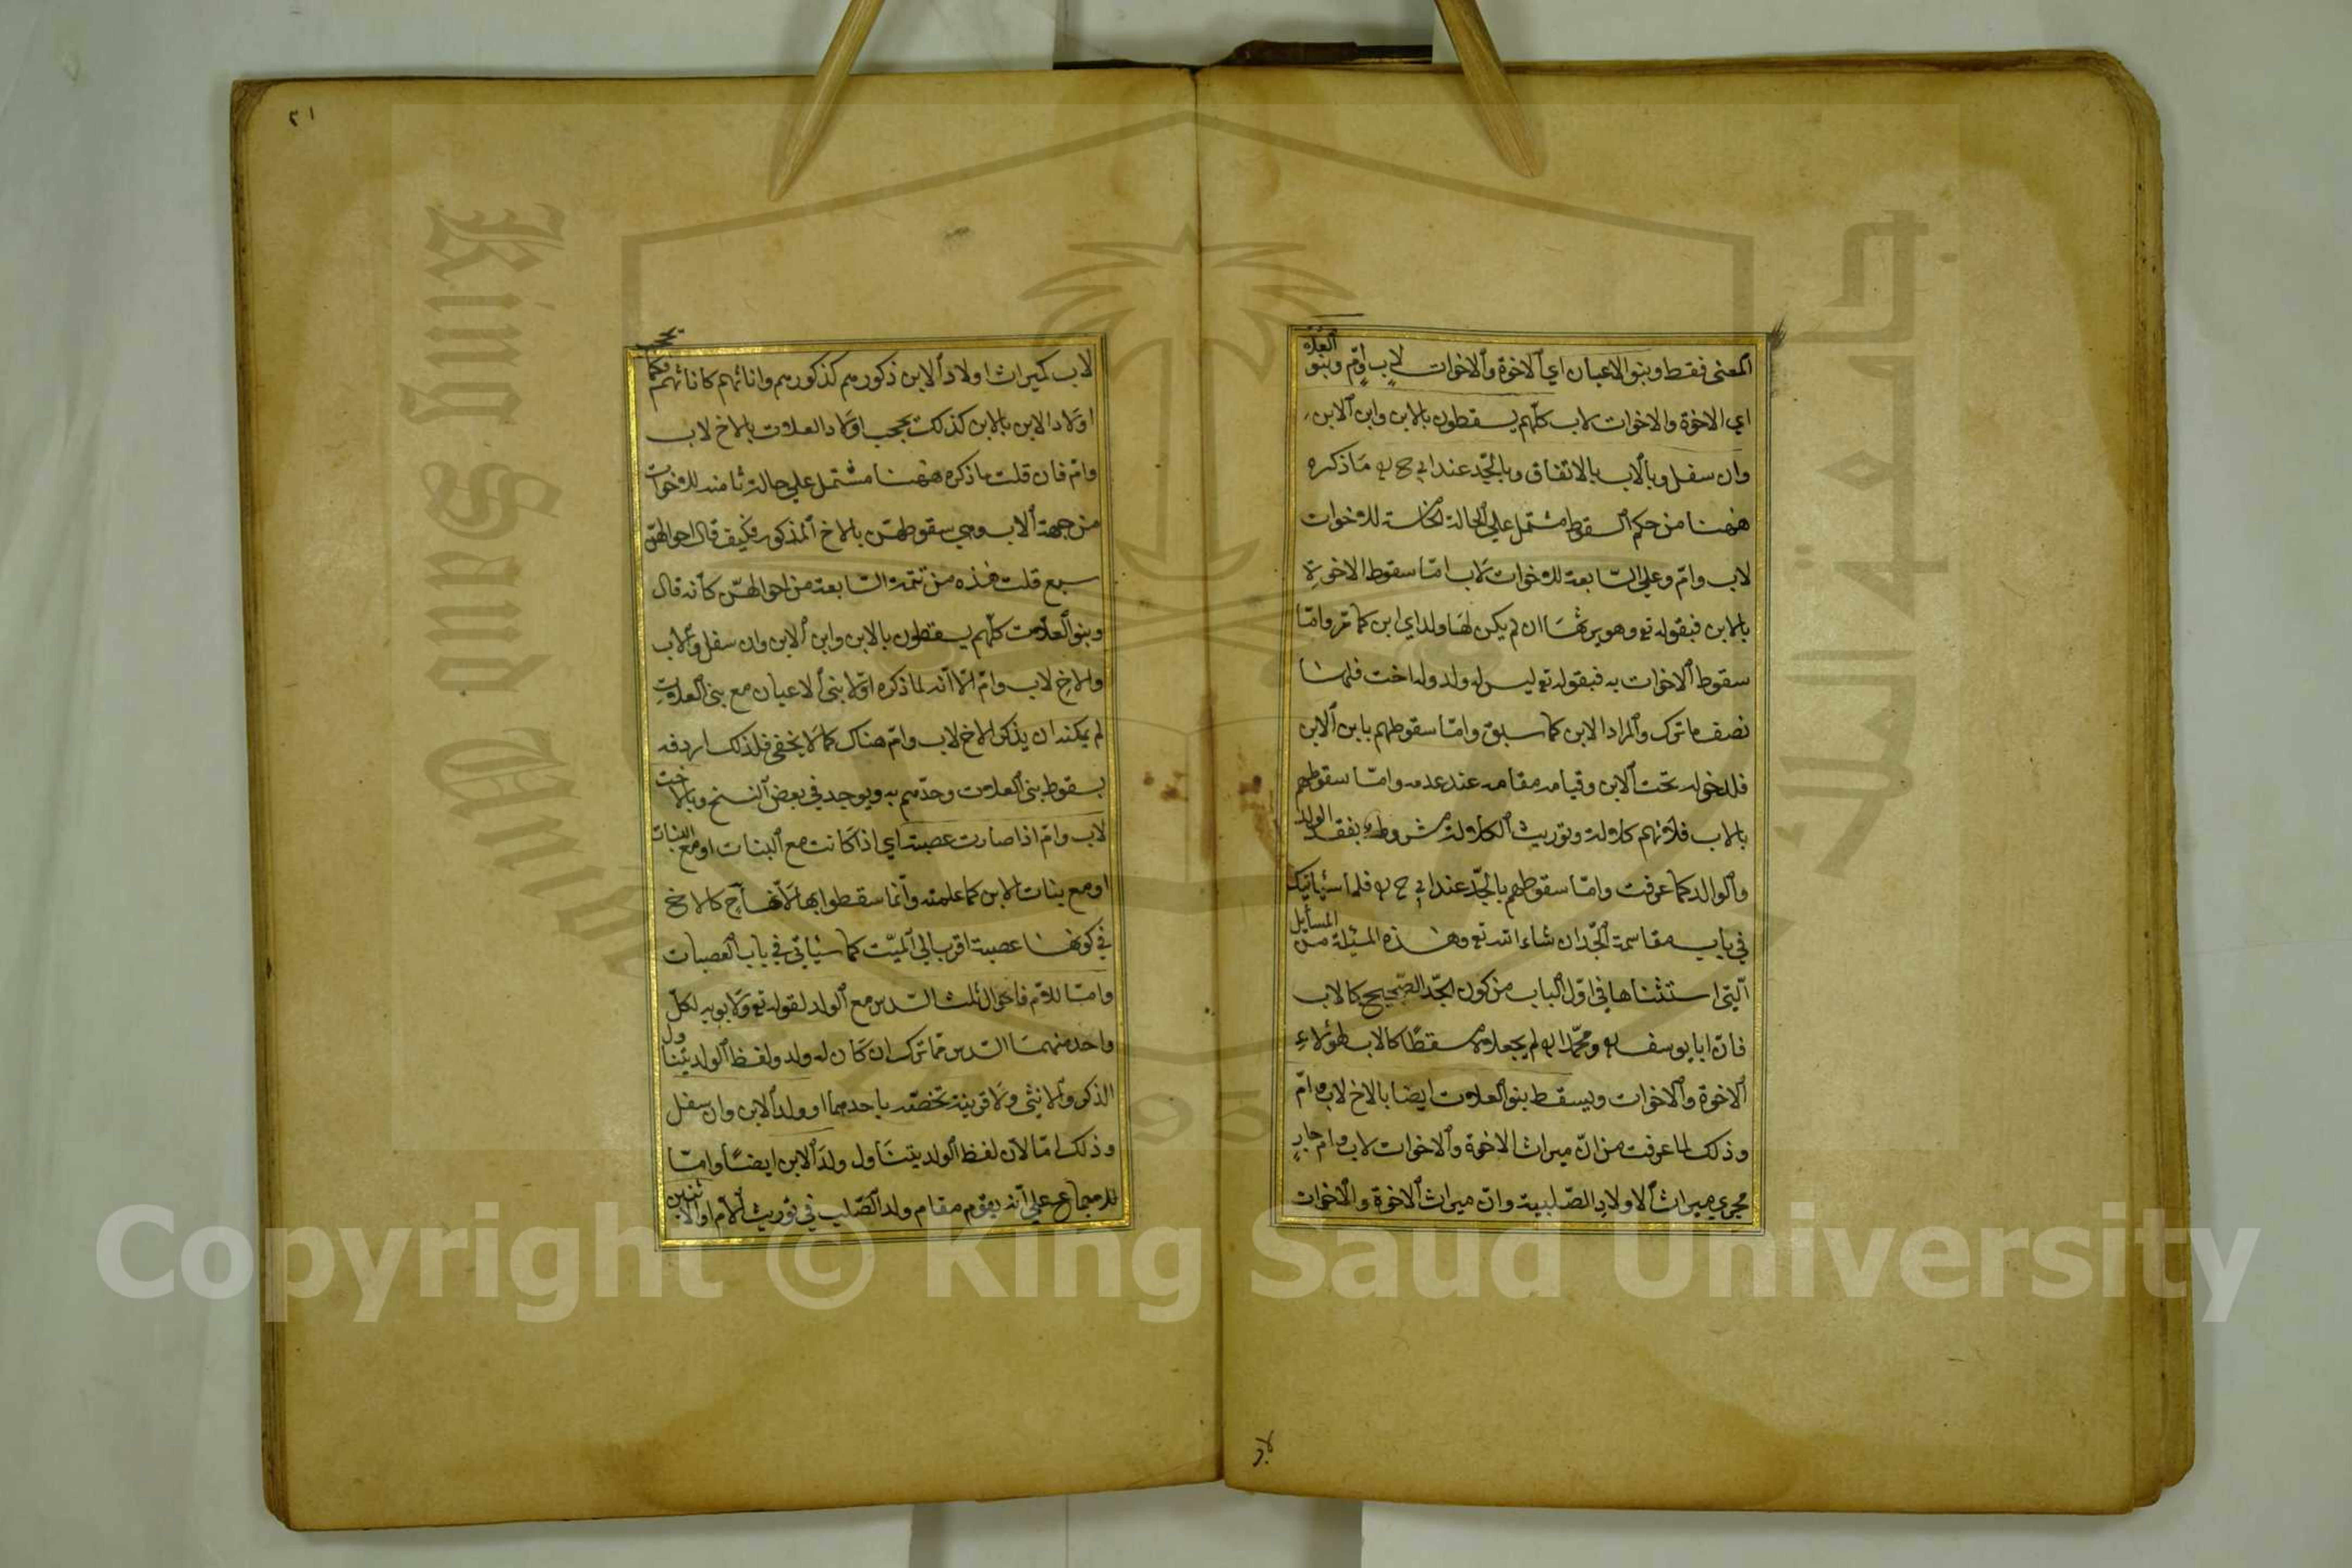 المعنى فقط وبنو الاعيان اي الاخوة والاخوات لاب وام وبنو العلات
اي الاخوة والاخوات لاب كلهم يسقطون بالابن وابن الابن
وان سفل وبالاب بالاتفاق وبالجد عند ابي ح ره ما ذكره
ههنا من حكم السقوط مشتمل علي الحالة الخامسة للاخوات
لاب وام وعلي السابعة للاخوات لاب اما سقوط الاخوة
بالابن فبقوله تع وهو يرثها ان لم يكن لها ولد اي ابن كما مر واما
سقوط الاخوات به فبقوله تع ليس له ولد وله اخت فلها
نصف ما ترك والمراد الابن كما سبق واما سقوطهم بابن الابن
فلدخوله تحت الابن وقيامه مقامه عند عدمه واما سقوطهم
بالاب فلانهم كلالة وتوريث الكلالة مشروط بفقد الولد
والوالد كما عرفت واما سقوطهم بالجد عند ابي ح ره فلما سيأتيك
في باب مقاسمة الجد ان شاء الله تع وهذه المسئلة من المسايل
التي استثناها في اول الباب من كون الجد الصحيح كالاب
فان ابا يوسف ره ومحمدا ره لم يجعلاه مسقطا كالاب لهؤلاء
الاخوة والاخوات ويسقط بنو العلات ايضا بالاخ لاب وام
وذلك لما عرفت من ان ميراث الاخوة والاخوات لاب وام جار
مجري ميراث الاولاد الصلبية وان ميراث الاخوة والاخوات
لاب
٢١
لاب كميراث اولاد الابن ذكورهم كذكورهم واناثهم كاناثهم وكما
اولاد الابن بالابن كذلك يحجب اولاد العلات بالاخ لاب
وام فان قلت ما ذكره ههنا مشتمل علي حالة ثامنه للاخوات
من جهة الاب وهي سقوطهن بالاخ المذكور فكيف قال احوالهن
سبع قلت هذه من تتمة السابعة من احوالهن كأنه قال
وبنو العلات كلهم يسقطون بالابن وابن الابن وان سفل وبالاب
والاخ لاب وام الا انه لما ذكره اولا بني الاعيان مع بني العلات
لم يمكنه ان يذكر الاخ لاب وام هناك كما لا يخفى فلذلك اردفه
بسقوط بني العلات وحدهم به ويوجد في بعض النسخ وبالاخت
لاب وام اذا صارت عصبة اي اذا كانت مع البنات او مع البنات
او مع بنات الابن كما علمته وانما سقطوا بها لانها ح كالاخ
في كونها عصبة اقرب الي الميت كما سيأتي في باب العصبات
واما للام فاحوال ثلث السدس مع الولد لقوله تع ولابويه لكل
واحد منهما السدس مما ترك ان كان له ولد ولفظ الولد يتناول
الذكر والانثى ولا قرينة تخصه باحدهما او ولد الابن وان سفل
وذلك اما لان لفظ الولد يتناول ولد الابن ايضا واما
للاجماع علي انه يقوم مقام ولد الصلب في توريث الام او الاثنين
Copyright © King Saud University